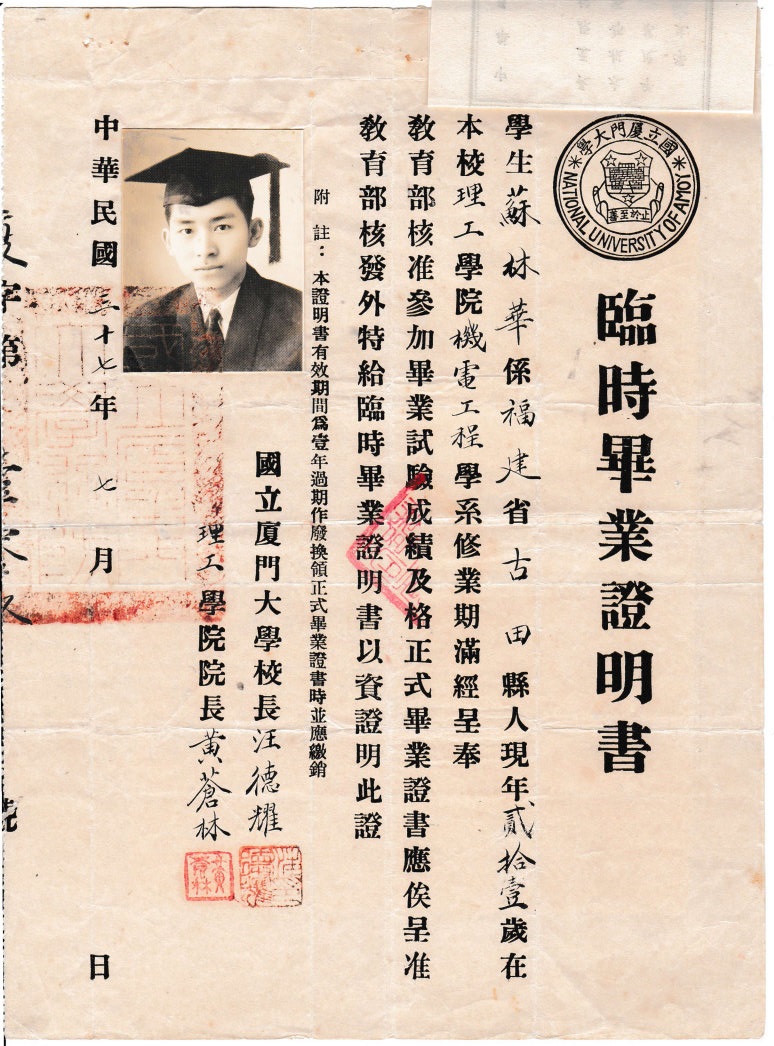 國立厦門大學
NATIONAL UNIVERSITY OF AMOY
止於至善
臨時畢業證明書
學生蘇林華係福建省古田縣人現年貳拾壹歲在
本校理工學院機電工程學系修業期滿經呈奉
敎育部核准參加畢業試驗成績及格正式畢業證書應俟呈准
敎育部核發外特給臨時畢業證明書以資證明此證
附註：本證明書有效期間爲壹年過期作廢換領正式畢業證書時並應繳銷
國立厦門大學校長汪德耀
理工學院院長黃蒼林
黃蒼林
中華民國三十七年七月 日
字第
號